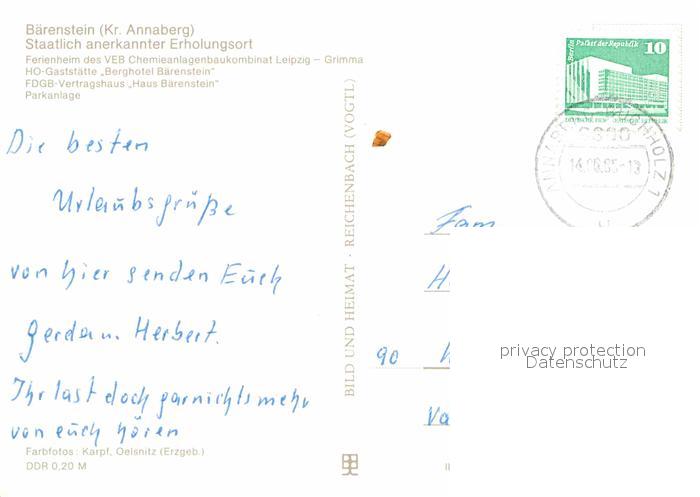 Bärenstein (Kr. Annaberg)
Staatlich anerkannter Erholungsort
Ferienheim des VEB Chemieanlagenbaukombinat Leipzig – Grimma
HO-Gaststätte „Berghotel Bärenstein"
FDGB-Vertragshaus „Haus Bärenstein"
Parkanlage
Die besten
Urlaubsgrüße
von hier senden Euch
Gerda u. Herbert.
Ihr last doch garnichts mehr
von euch hören
Farbfotos: Karpf, Oelsnitz (Erzgeb.)
DDR 0,20 M
BILD UND HEIMAT · REICHENBACH (VOGTL)
Berlin Palast der Republik
10
14.08.85-13
Fam
H
90
Va
privacy protection
Datenschutz